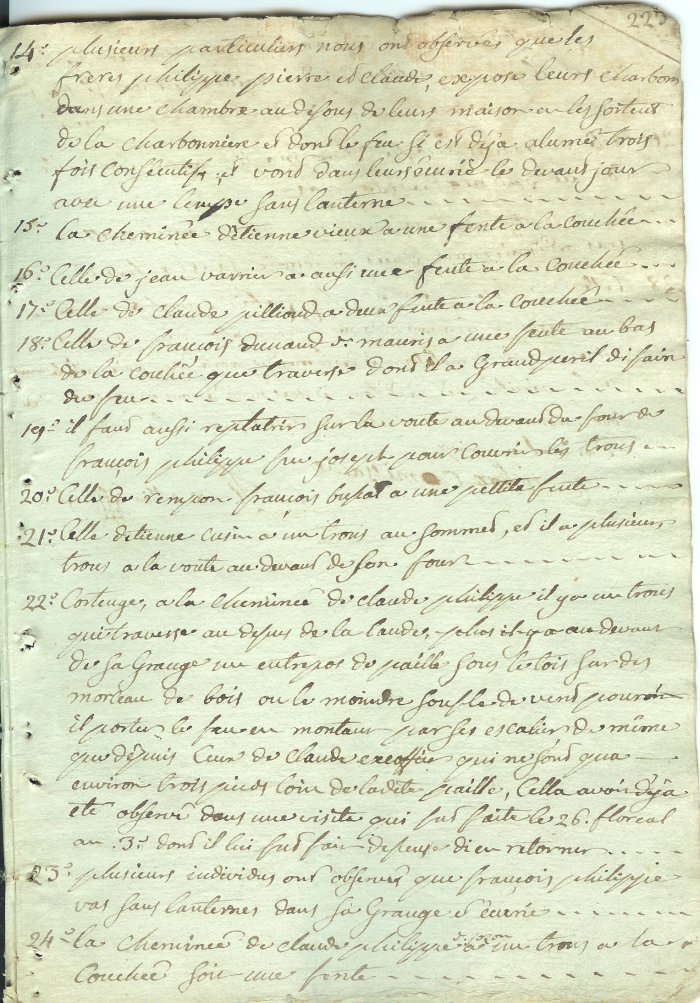 223
14° plusieurs particuliers nous ont observés que les
freres philippe, pierre et claude, expose leurs charbon
dans une chambre au desous de leurs maison en les sortent
de la charbonniere et dont le feu si est dêja alumée trois
fois consecutifs, et vont dans leurs écurie le devant jour
avec une lempe sans lanterne
15° la cheminée d'êtienne vieux a une fente a la couchée
16° Celle de jean vavrier a aussi une fente a la couchée
17° Celle de claude pilliond a deux fente a la couchée
18° Celle de francois dunand d. mauris a une fente au bas
de la couchée que traverse dont il a Grand peril di faire
du feu
19° il faut aussi replatrir sur la voute au devant du four de
francois philippe feu joseph pour couvrir les trous
20° Celle de françois a une pettite fente
21° Celle detienne cusin a un trous au sommet, et il a plusieurs
trous a la voute au devant de son four
22° Cortenge, a la cheminée de claude philippe il y a un trous
qui traverse au depus de la laude, plus il y a au devant
de sa Grange un entrepos de paille sous le tois sur des
morceau de bois ou le moindre soufle de vent pouroit
il porter le feu en montant par ses escalier de même
que dépuis Ceux de claude qui ne sont qua
environ trois pieds loin de ladête paille, Cella avoit dêja
eté observé dans une visite qui fut faite le 26. floreal
an .3° dont il lui fut fait depense di en retorner
23° plusieurs individus ont observés que françois philippe
vas sans lanternes dans sa Grange et écurie
24° la cheminée de claude philippe d. joson a un trous a la
Couchée soit une fente